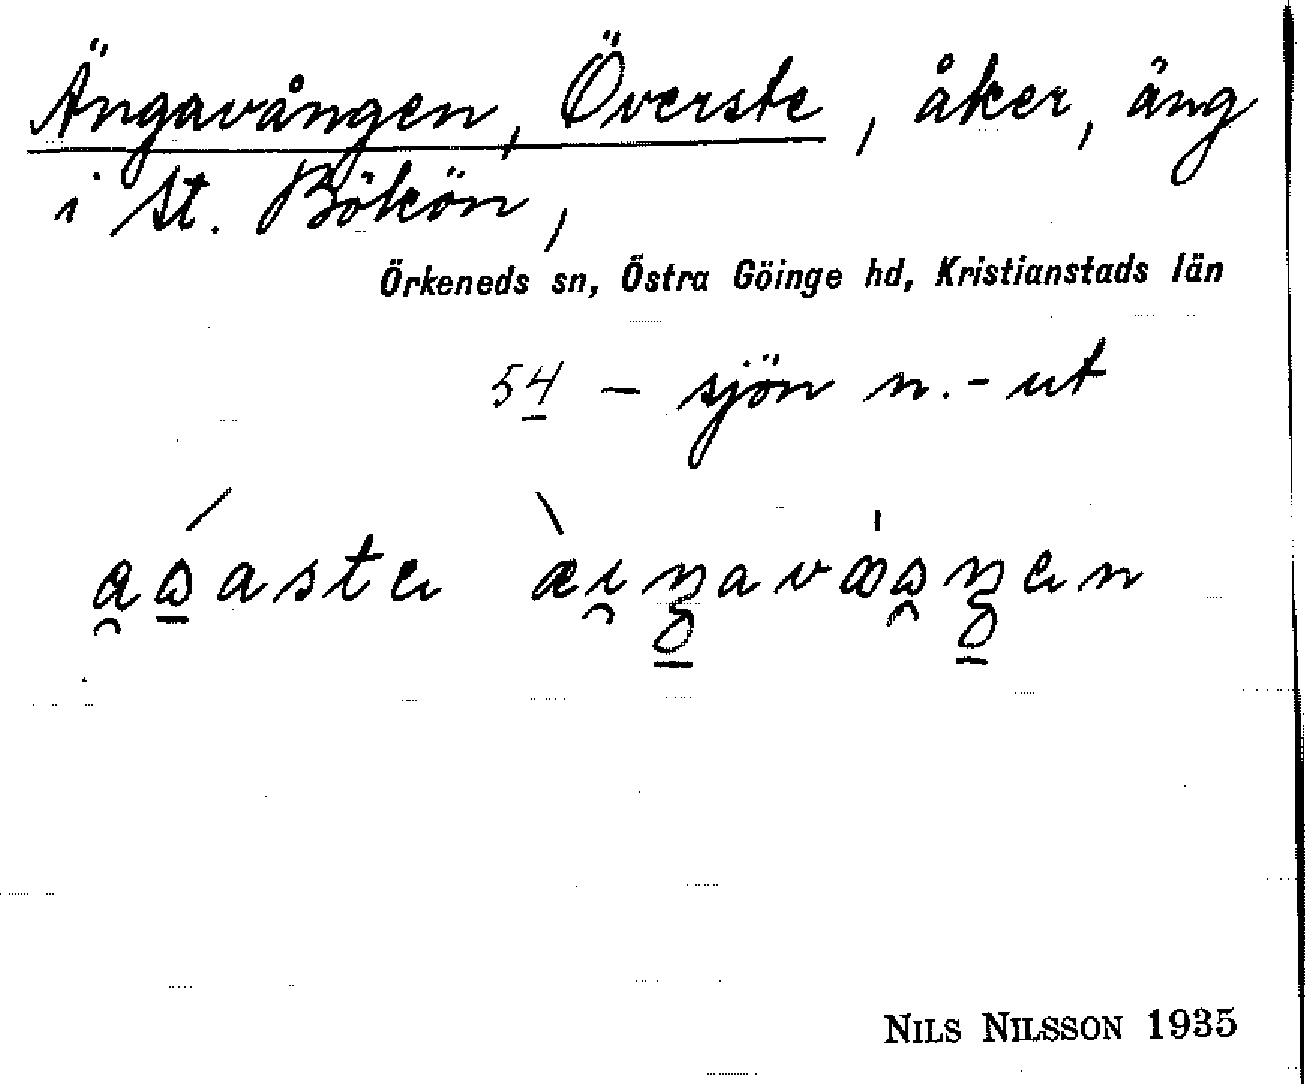 Ängavången, Överste, åker, äng
i St. Bökön,
Örkeneds sn, Östra Göinge hd, Kristianstads län
54 – sjön n.- ut
NILS NILSSON 1935